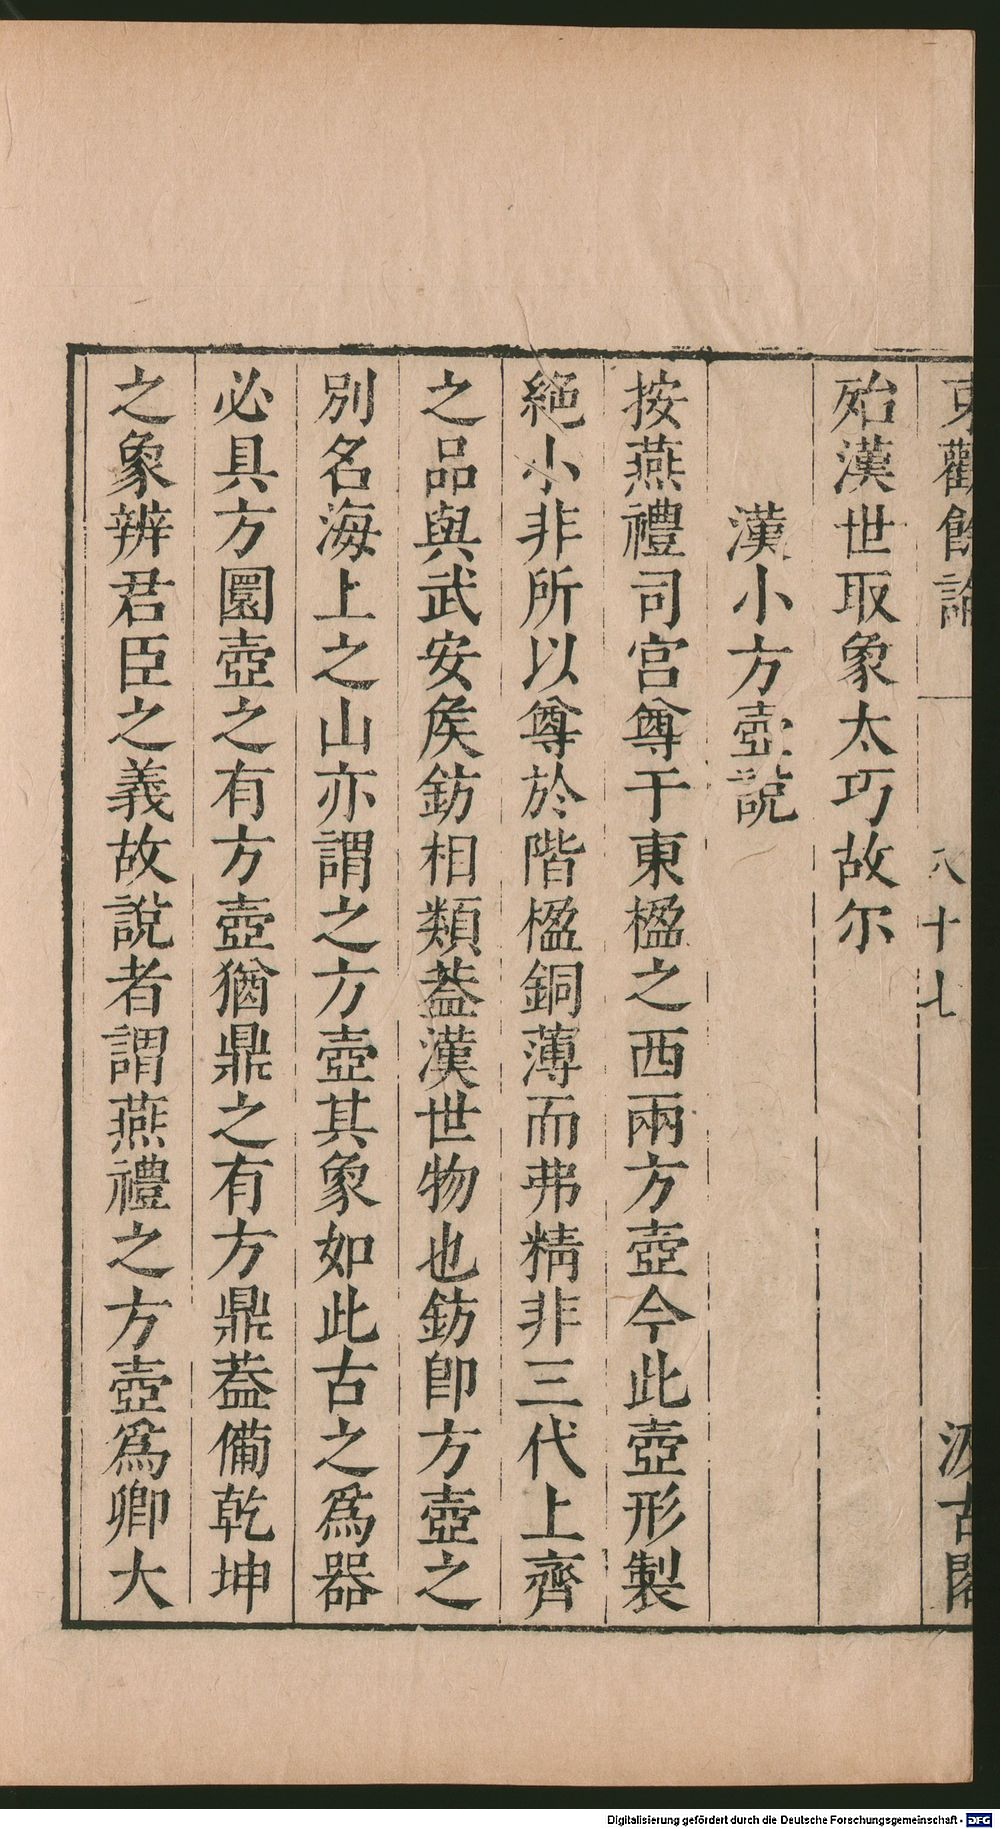 東觀餘論 八十七 汲古閣
殆漢世取象太巧故尔
漢小方壺說
按燕禮司宫尊于東楹之西兩方壺今此壺形製
絕小非所以尊於階楹銅薄而弗精非三代上齊
之品與武安矦鈁相類葢漢世物也鈁卽方壺之
別名海上之山亦謂之方壺其象如此古之爲器
必具方圜壺之有方壺猶鼎之有方鼎葢備乾坤
之象辨君臣之義故說者謂燕禮之方壺爲卿大
Digitalisierung gefördert durch die Deutsche Forschungsgemeinschaft - DFG